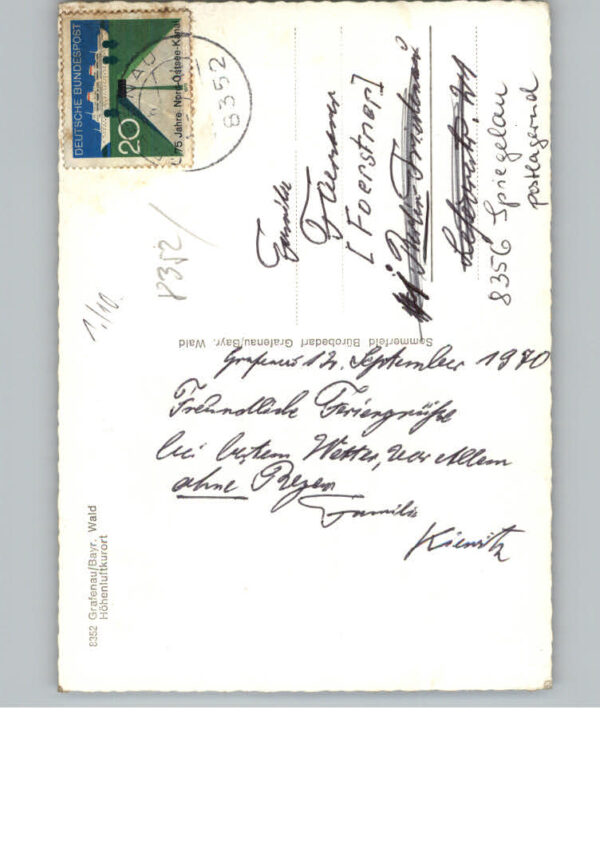 DEUTSCHE BUNDESPOST
20
75 Jahre Nord-Ostsee-Kanal
8352
8352/
1./10.
Familie
[Foerstner]
8356 Spiegelau
postlagernd
Sommerfeld Bürobedarf Grafenau/Bayr. Wald
Grafenau 12. September 1970
Freundliche Feriengrüße
bei bestem Wetter, vor Allem
ohne Regen
Familie
Kiewitz
8352 Grafenau/Bayr. Wald
Höhenluftkurort